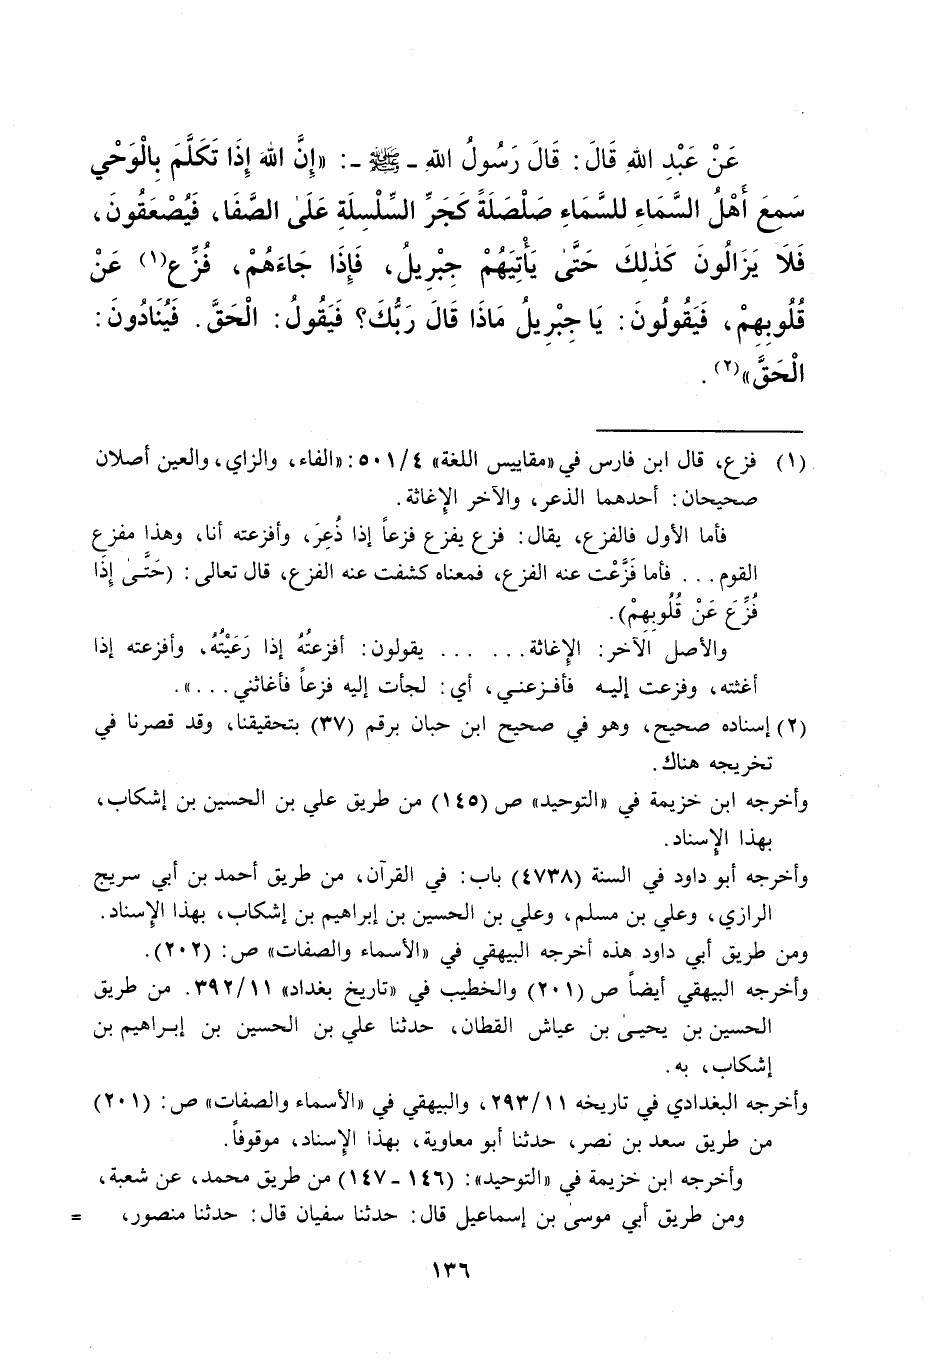 عَنْ عَبْدِ اللهِ قَالَ: قَالَ رَسُولُ اللهِ - ﷺ -: «إِنَّ اللهَ إِذَا تَكَلَّمَ بِالْوَحْيِ
سَمِعَ أَهْلُ السَّمَاءِ للسَّمَاءِ صَلْصَلَةً كَجَرِّ السِّلْسِلَةِ عَلَى الصَّفَا، فَيُصْعَقُونَ،
فَلَا يَزَالُونَ كَذٰلِكَ حَتَّى يَأْتِيَهُمْ جِبْرِيلُ، فَإِذَا جَاءَهُمْ، فُزِّع(١) عَنْ
قُلُوبِهِمْ، فَيَقُولُونَ: يَا جِبْرِيلُ مَاذَا قَالَ رَبُّكَ؟ فَيَقُولُ: الْحَقَّ. فَيُنَادُونَ:
الْحَقَّ»(٢).
(١) فزع، قال ابن فارس في «مقاييس اللغة» ٥٠١/٤: «الفاء، والزاي، والعين أصلان
صحيحان: أحدهما الذعر، والآخر الإغاثة.
فأما الأول فالفزع، يقال: فزع يفزع فزعاً إذا ذُعِرَ، وأفزعته أنا، وهذا مفزع
القوم... فأما فَزَّعْت عنه الفزع، فمعناه كشفت عنه الفزع، قال تعالى: (حَتَّى إِذَا
فُزِّعَ عَنْ قُلُوبِهِمْ).
والأصل الآخر: الإغاثة... ... يقولون: أفزعتُهُ إذا رَعَبْتُهُ، وأفزعته إذا
أغثته، وفزعت إليه فأفزعني، أي: لجأت إليه فزعاً فأغاثني...».
(٢) إسناده صحيح، وهو في صحيح ابن حبان برقم (٣٧) بتحقيقنا، وقد قصرنا في
تخريجه هناك.
وأخرجه ابن خزيمة في «التوحيد» ص (١٤٥) من طريق علي بن الحسين بن إشكاب،
بهذا الإسناد.
وأخرجه أبو داود في السنة (٤٧٣٨) باب: في القرآن، من طريق أحمد بن أبي سريج
الرازي، وعلي بن مسلم، وعلي بن الحسين بن إبراهيم بن إشكاب، بهذا الإسناد.
ومن طريق أبي داود هذه أخرجه البيهقي في «الأسماء والصفات» ص: (٢٠٢).
وأخرجه البيهقي أيضاً ص (٢٠١) والخطيب في «تاريخ بغداد» ٣٩٢/١١. من طريق
الحسين بن يحيى بن عياش القطان، حدثنا علي بن الحسين بن إبراهيم بن
إشكاب، به.
وأخرجه البغدادي في تاريخه ٢٩٣/١١، والبيهقي في «الأسماء والصفات» ص: (٢٠١)
من طريق سعد بن نصر، حدثنا أبو معاوية، بهذا الإسناد، موقوفاً.
وأخرجه ابن خزيمة في «التوحيد»: (١٤٦ - ١٤٧) من طريق محمد، عن شعبة،
ومن طريق أبي موسى بن إسماعيل قال: حدثنا سفيان قال: حدثنا منصور، =
١٣٦